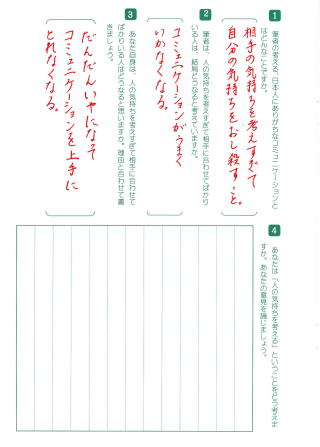 1
筆者の考える、日本人にありがちなコミュニケーションと
はどんなことですか。
相手の気持ちを考えすぎて
自分の気持ちをおし殺すこと。
2
筆者は、人の気持ちを考えすぎて相手に合わせてばかり
いる人は、結局どうなると考えていますか。
コミュニケーションがうまく
いかなくなる。
3
あなた自身は、人の気持ちを考えすぎて相手に合わせて
ばかりいる人はどうなると思いますか。理由と合わせて書
きましょう。
だんだんいやになって
コミュニケーションを上手に
とれなくなる。
4
あなたは「人の気持ちを考える」ということをどう考えま
すか。あなたの意見を論じましょう。